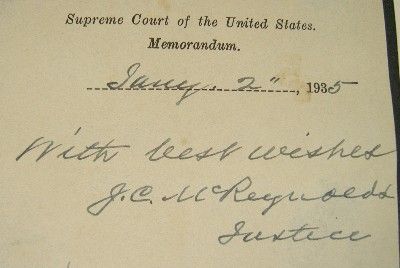 Supreme Court of the United States.
Memorandum.
Jany. 2", 1935
With best wishes
J.C. McReynolds
Justice